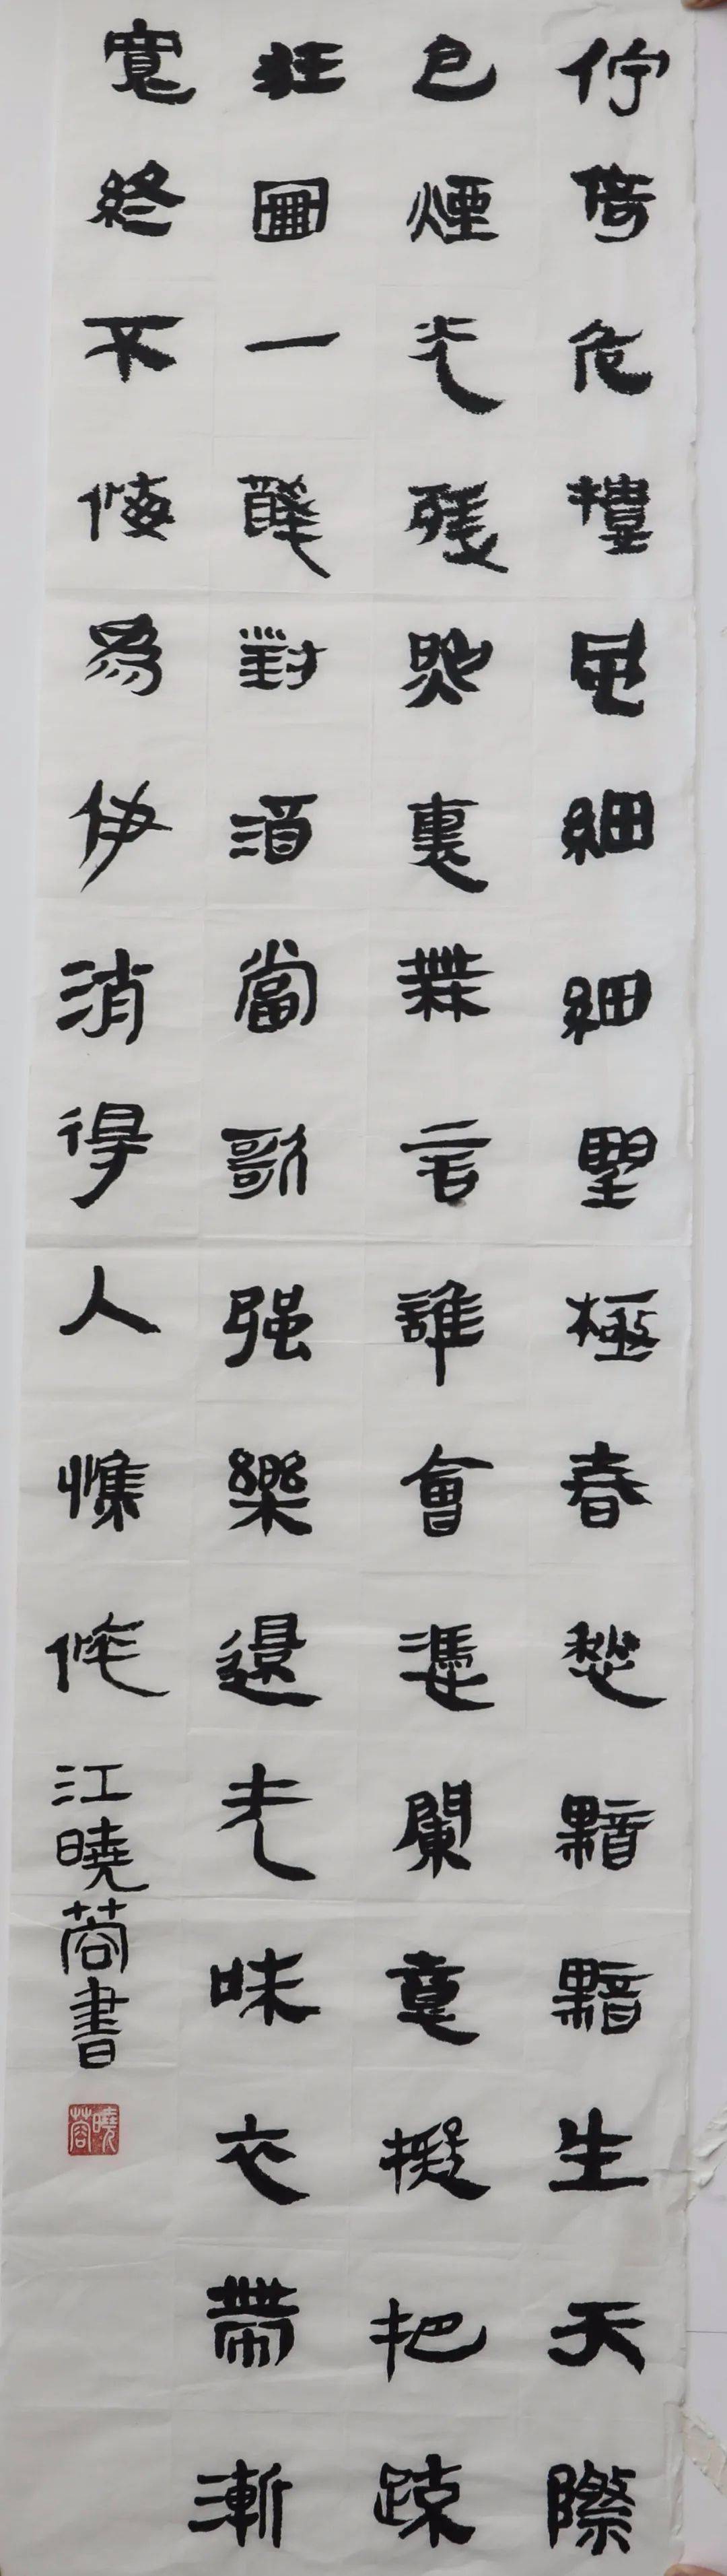 佇倚危樓風細細望極春愁黯黯生天際
色煙光殘照裏無言誰會憑闌意擬把踈
狂圖一醉對酒當歌强樂還无味衣帶漸
寬終不悔爲伊消得人憔悴
江曉蓉書
曉蓉